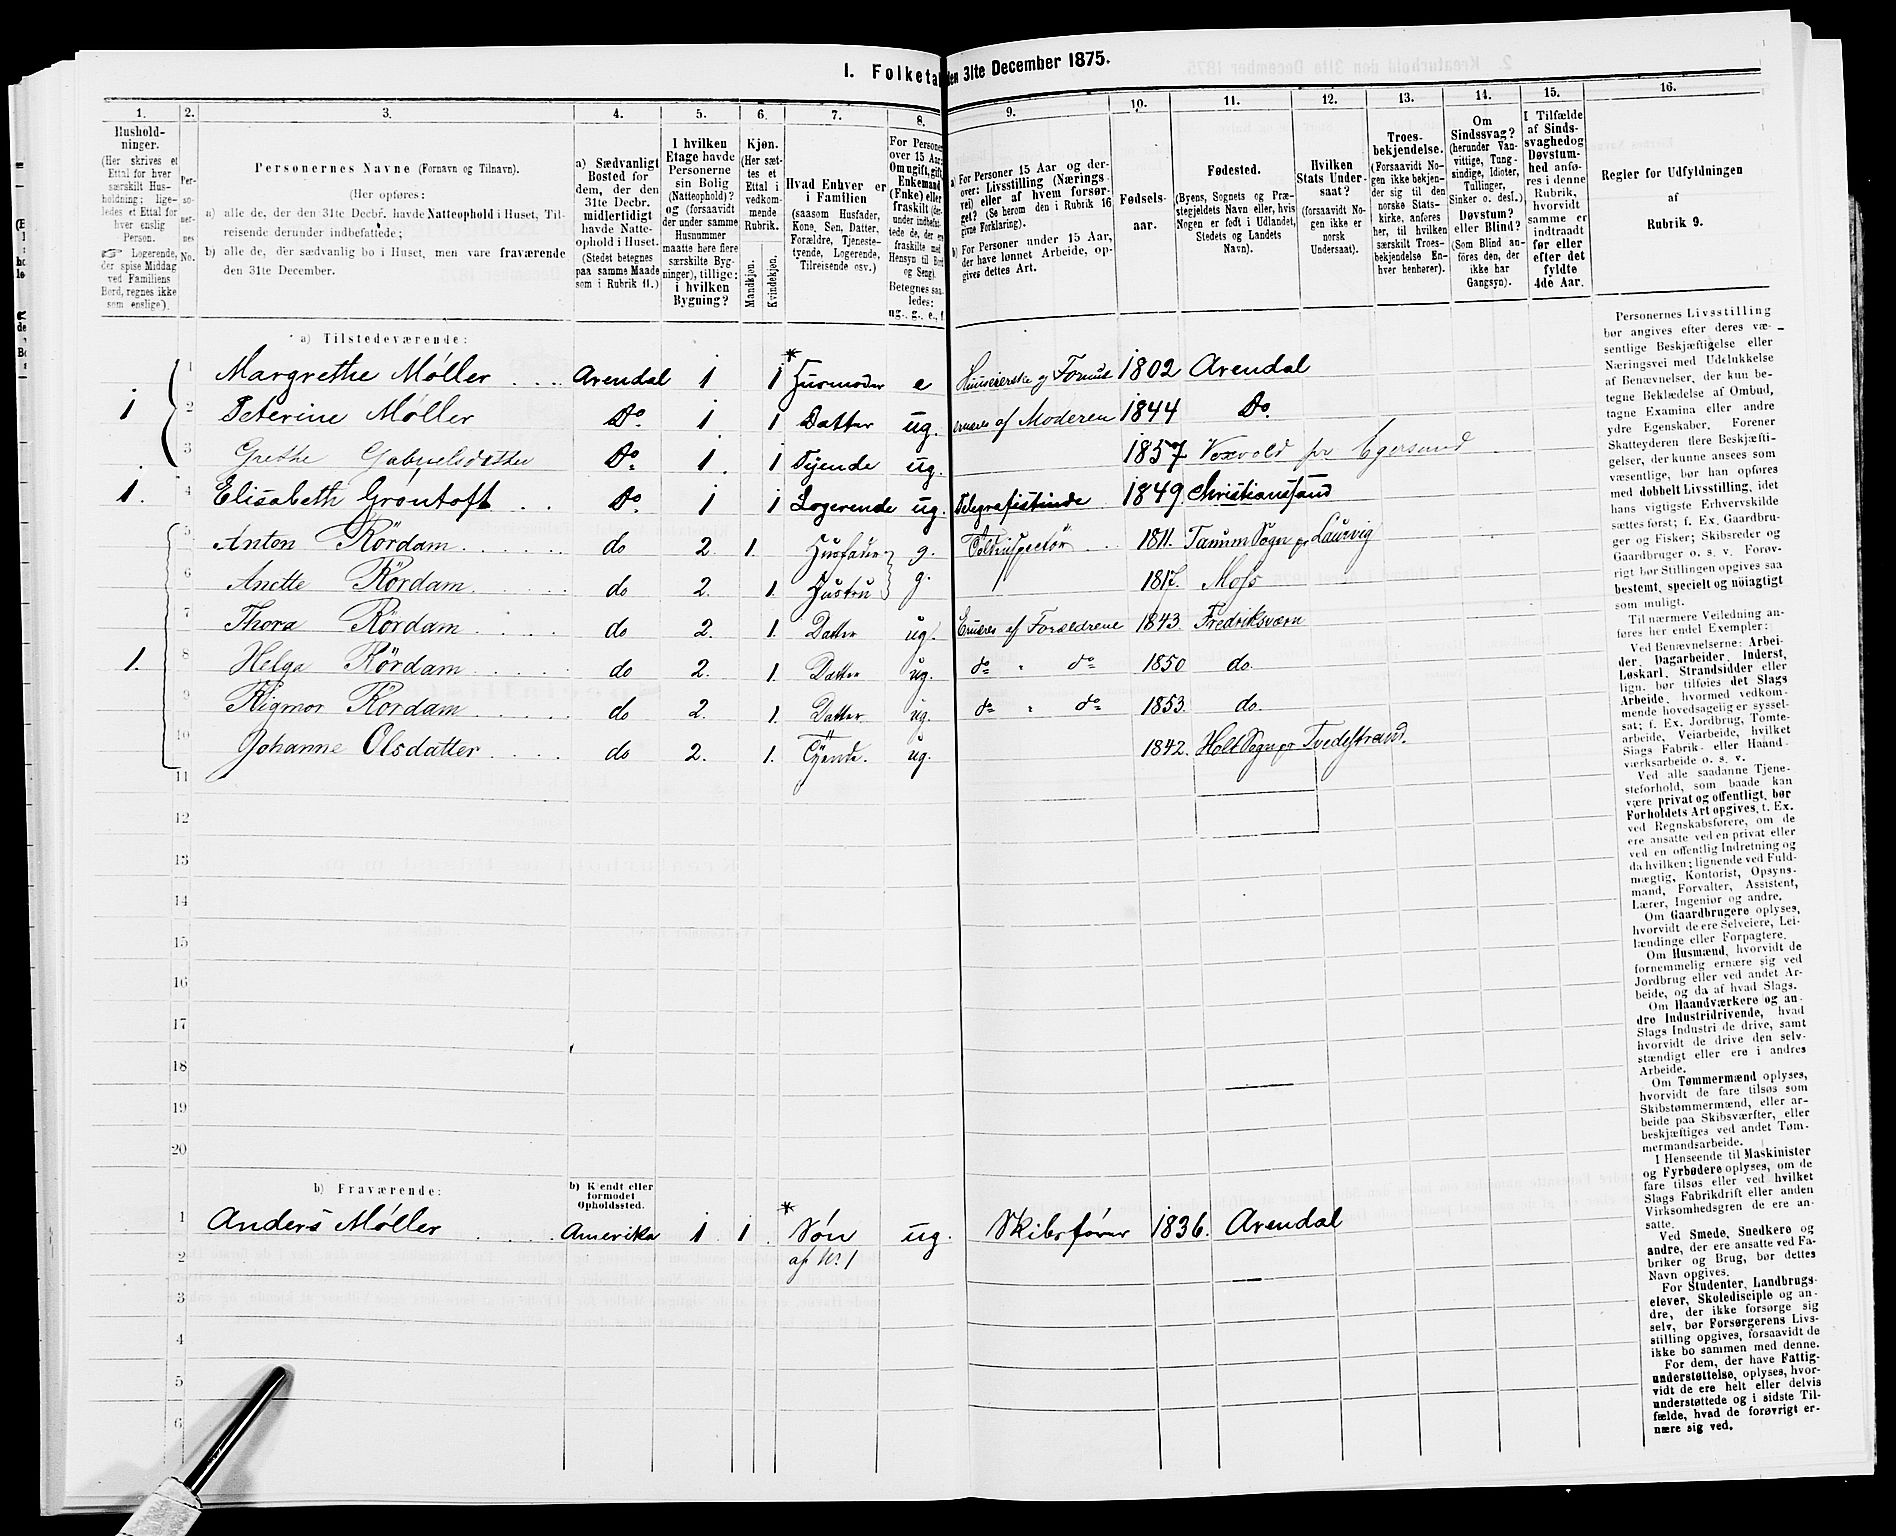 I. Folketal den 31te December 1875.
1. 2. 3. 4. 5. 6. 7. 8. 9. 10. 11. 12. 13. 14. 15. 16.
Hushold-
ninger.
(Her skrives et
Ettal for hver
særskilt Hus-
holdning; lige-
ledes et Ettal for
hver enslig
Person.
☞ Logerende,
der spise Middag
ved Familiens
Bord, regnes ikke
som enslige).
Per-
so-
ner-
nes
No.
Personernes Navne (Fornavn og Tilnavn).
(Her opføres:
a) alle de, der den 31te Decbr. havde Natteophold i Huset, Til-
reisende derunder indbefattede;
b) alle de, der sædvanlig bo i Huset, men vare fraværende
den 31te December.
a) Sædvanligt
Bosted for
dem, der den
31te Decbr.
midlertidigt
havde Natte-
ophold i Huset.
(Stedet betegnes
paa samme Maade
som i Rubrik 11.)
I hvilken
Etage havde
Personerne
sin Bolig
(Natteophold)?
og (forsaavidt
der under samme
Husnummer
maatte høre flere
særskilte Byg-
ninger), tillige:
i hvilken
Bygning?
Kjøn.
(Her sæt-
tes et
Ettal i
vedkom-
mende
Rubrik.
Mandkjøn.
Kvindekjøn.
Hvad Enhver er
i Familien
(saasom Husfader,
Kone, Søn, Datter,
Forældre, Tjeneste-
tyende, Logerende,
Tilreisende osv.)
For Personer
over 15 Aar:
Om ugift, gift,
Enkemand
(Enke) eller
fraskilt (der-
under indbefat-
tede de, der ere
fraskilte med
Hensyn til Bord
og Seng).
Betegnes saa-
ledes:
ug., g., e., f.
a) For Personer 15 Aar og der-
over: Livsstilling (Nærings-
vei) eller af hvem forsør-
get? (Se herom den i Rubrik 16
givne Forklaring).
b) For Personer under 15 Aar,
der have lønnet Arbeide, op-
gives dettes Art.
Fødsels-
aar.
Fødested.
(Byens, Sognets og Præ-
stegjeldets Navn eller, hvis
Nogen er født i Udlandet,
Stedets og Landets
Navn).
Hvilken
Stats Under-
saat?
(forsaavidt No-
gen ikke er
norsk
Undersaat).
Troes-
bekjendelse.
(Forsaavidt No-
gen ikke bekjen-
der sig til den
norske Stats-
kirke, anføres
her, til hvilken
særskilt Troes-
bekjendelse En-
hver henhører).
Om
Sindssvag?
(herunder Van-
vittige, Tung-
sindige, Idioter,
Tullinger,
Sinker o. desl.)
Døvstum?
eller Blind?
(Som Blind an-
føres den, der
ikke har
Gangsyn).
I Tilfælde
af Sinds-
svaghed og
Døvstum-
hed anfø-
res i denne
Rubrik,
hvorvidt
samme er
indtraadt
før eller
efter det
fyldte
4de Aar.
Regler for Udfyldningen
af
Rubrik 9.
a) Tilstedeværende:
1 Margrethe Møller Arendal 1 1 Husmoder e Huuseierske og Formue 1802 Arendal
1 2 Peterine Møller Do. 1 1 Datter ug. ernæres af Moderen 1844 Do.
3 Grethe Gabrielsdatter Do. 1. 1 Tjende ug. 1857 pr Egersund
1. 4 Elisabeth Grøntoft Do. 1 1 Logerende ug. Telegrafistinde 1849. Christianssand
5 Anton Rördam do 2. 1. Husfader g. Toldinspectør 1811. Tanum Sogn pr Laurvig
6 Anette Rördam do 2. 1. Hustru g. 1817. Moss
7 Thora Rördam do 2. 1. Datter ug. Ernæres af Forældrene 1843. Fredriksværn
1. 8 Helga Rördam do 2. 1. Datter ug. do " do 1850 do.
9 Rigmor Rördam do 2. 1. Datter ug. do " do 1853. do.
10 Johanne Olsdatter do 2. 1. Tyende. ug. 1842. Holt Sogn pr Tvedestrand.
11
12
13
14
15
16
17
18
19
20
b) Fraværende:
b) Kjendt eller
formodet
Opholdssted.
1 Anders Møller Amerika 1 1 Søn ug. Skibsfører 1836. Arendal
af No. 1
2
3
4
5
6
Personernes Livsstilling
bør angives efter deres væ-
sentlige Beskjæftigelse eller
Næringsvei med Udelukkelse
af Benævnelser, der kun be-
tegne Beklædelse af Ombud,
tagne Examina eller andre
ydre Egenskaber. Forener
Skatteyderen flere Beskjæfti-
gelser, der kunne ansees som
væsentlige, bør han opføres
med dobbelt Livsstilling, idet
hans vigtigste Erhvervskilde
sættes først; f. Ex. Gaardbru-
ger og Fisker; Skibsreder og
Gaardbruger o. s. v. Forøv-
rigt bør Stillingen opgives saa
bestemt, specielt og nøiagtigt
som muligt.
Til nærmere Veiledning an-
føres her endel Exempler:
Ved Benævnelserne: Arbei-
der, Dagarbeider, Inderst,
Løskarl, Strandsidder eller
lign. bør tilføies det Slags
Arbeide, hvormed vedkom-
mende hovedsagelig er syssel-
sat; f. Ex. Jordbrug, Tomte-
arbeide, Veiarbeide, hvilket
Slags Fabrik- eller Haand-
værksarbeide o. s. v.
Ved alle saadanne Tjene-
steforhold, som baade kan
være privat og offentligt, bør
Forholdets Art opgives, t. Ex.
ved Regnskabsførere, om de
ere ansatte ved en privat eller
ved en offentlig Indretning og
da hvilken; lignende ved Fuld-
mægtig, Kontorist, Opsyns-
mand, Forvalter, Assistent,
Lærer, Ingeniør og andre.
Om Gaardbrugere oplyses,
hvorvidt de ere Selveiere, Lei-
lændinge eller Forpagtere.
Om Husmænd, hvorvidt de
fornemmelig ernære sig ved
Jordbrug eller ved andet Ar-
beide, og da af hvad Slags.
Om Haandværkere og an-
dre Industridrivende, hvad
Slags Industri de drive, samt
hvorvidt de drive den selv-
stændigt eller ere i andres
Arbeide.
Om Tømmermænd oplyses,
hvorvidt de fare tilsøs som
Skibstømmermænd, eller ar-
beide paa Skibsværfter, eller
beskjæftiges ved andet Tøm-
mermandsarbeide.
I Henseende til Maskinister
og Fyrbødere oplyses, om de
fare tilsøs eller ved hvilket
Slags Fabrikdrift eller anden
Virksomhedsgren de ere an-
satte.
Ved Smede, Snedkere og
andre, der ere ansatte ved Fa-
briker og Brug, bør dettes
Navn opgives.
For Studenter, Landbrugs-
elever, Skoledisciple og an-
dre, der ikke forsørge sig
selv, bør Forsørgerens Livs-
stilling opgives, forsaavidt de
ikke bo sammen med denne.
For dem, der have Fattig-
understøttelse, oplyses, hvor-
vidt de ere helt eller delvis
understøttede og i sidste Til-
fælde, hvad de forøvrigt er-
nære sig ved.